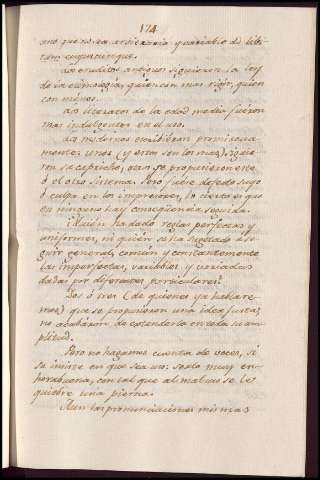 174
uno que no sea arbitraria y variable ad libi-
tum cujuscumque.
Los eruditos antiguos siguieron la ley
de la etimologia, quien con mas rigor, quien
con menos.
Los literatos de la edad media fueron
mas indulgentes en el uso.
Los modernos escribieron promiscua-
mente: unos (y estos son los mas) siguie-
ron su capricho, otros se propusieron este
ó el otro sistema. Pero fuese defecto suyo
ó culpa en los impresores, lo cierto es que
en ninguno hay consequencia seguida.
¿Quién ha dado reglas perfectas y
uniformes, ni quién se ha sugetado á se-
guir general, comun y constantemente
las imperfectas, variables y variadas
dadas por diferentes particulares?
Dos ó tres (de quienes ya hablare-
mos) que se propusieron una idea justa,
no acabáron de extenderla en toda su am-
plitud.
Pero no hagamos cuenta de voces, si
se insiste en que sea uso: sealo muy en-
horabuena, con tal que al mal uso se le
quiebre una pierna.
Aun las pronunciaciones mismas